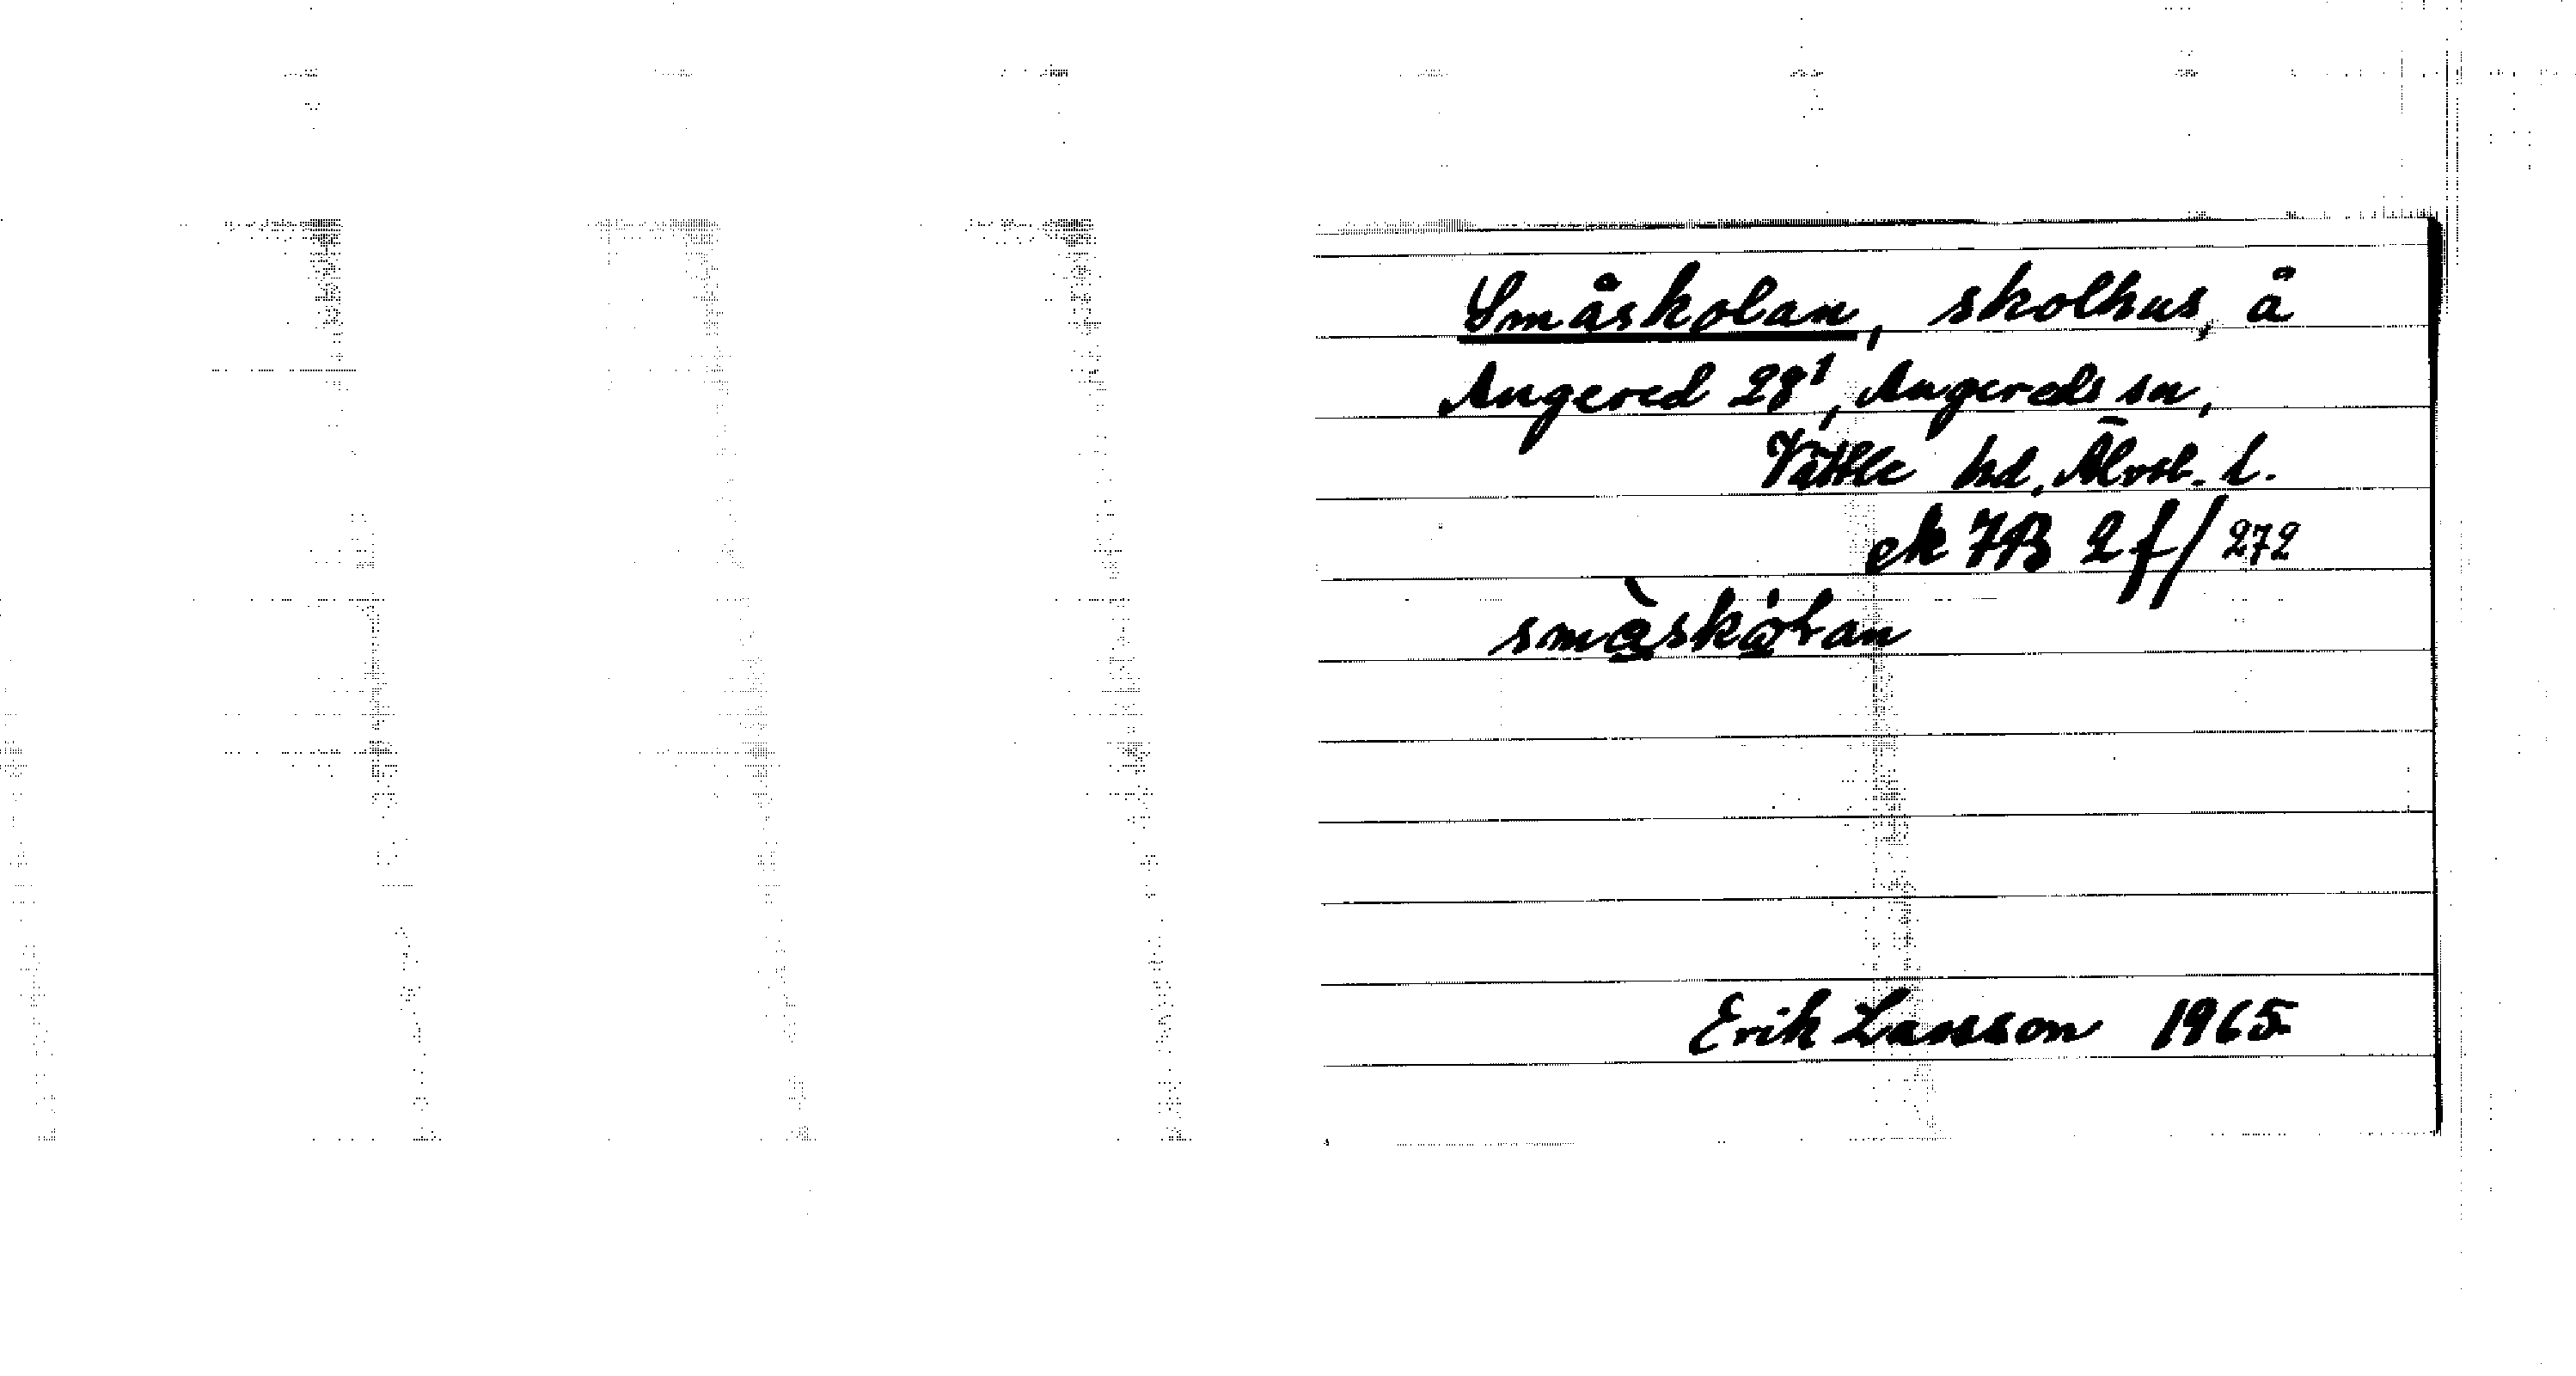 Småskolan, skolhus, å
Angered 28¹, Angereds sn,
Vättle hd, Älvsb. l.
ek 7B 2f/272
småskolan
Erik Larsson 1965